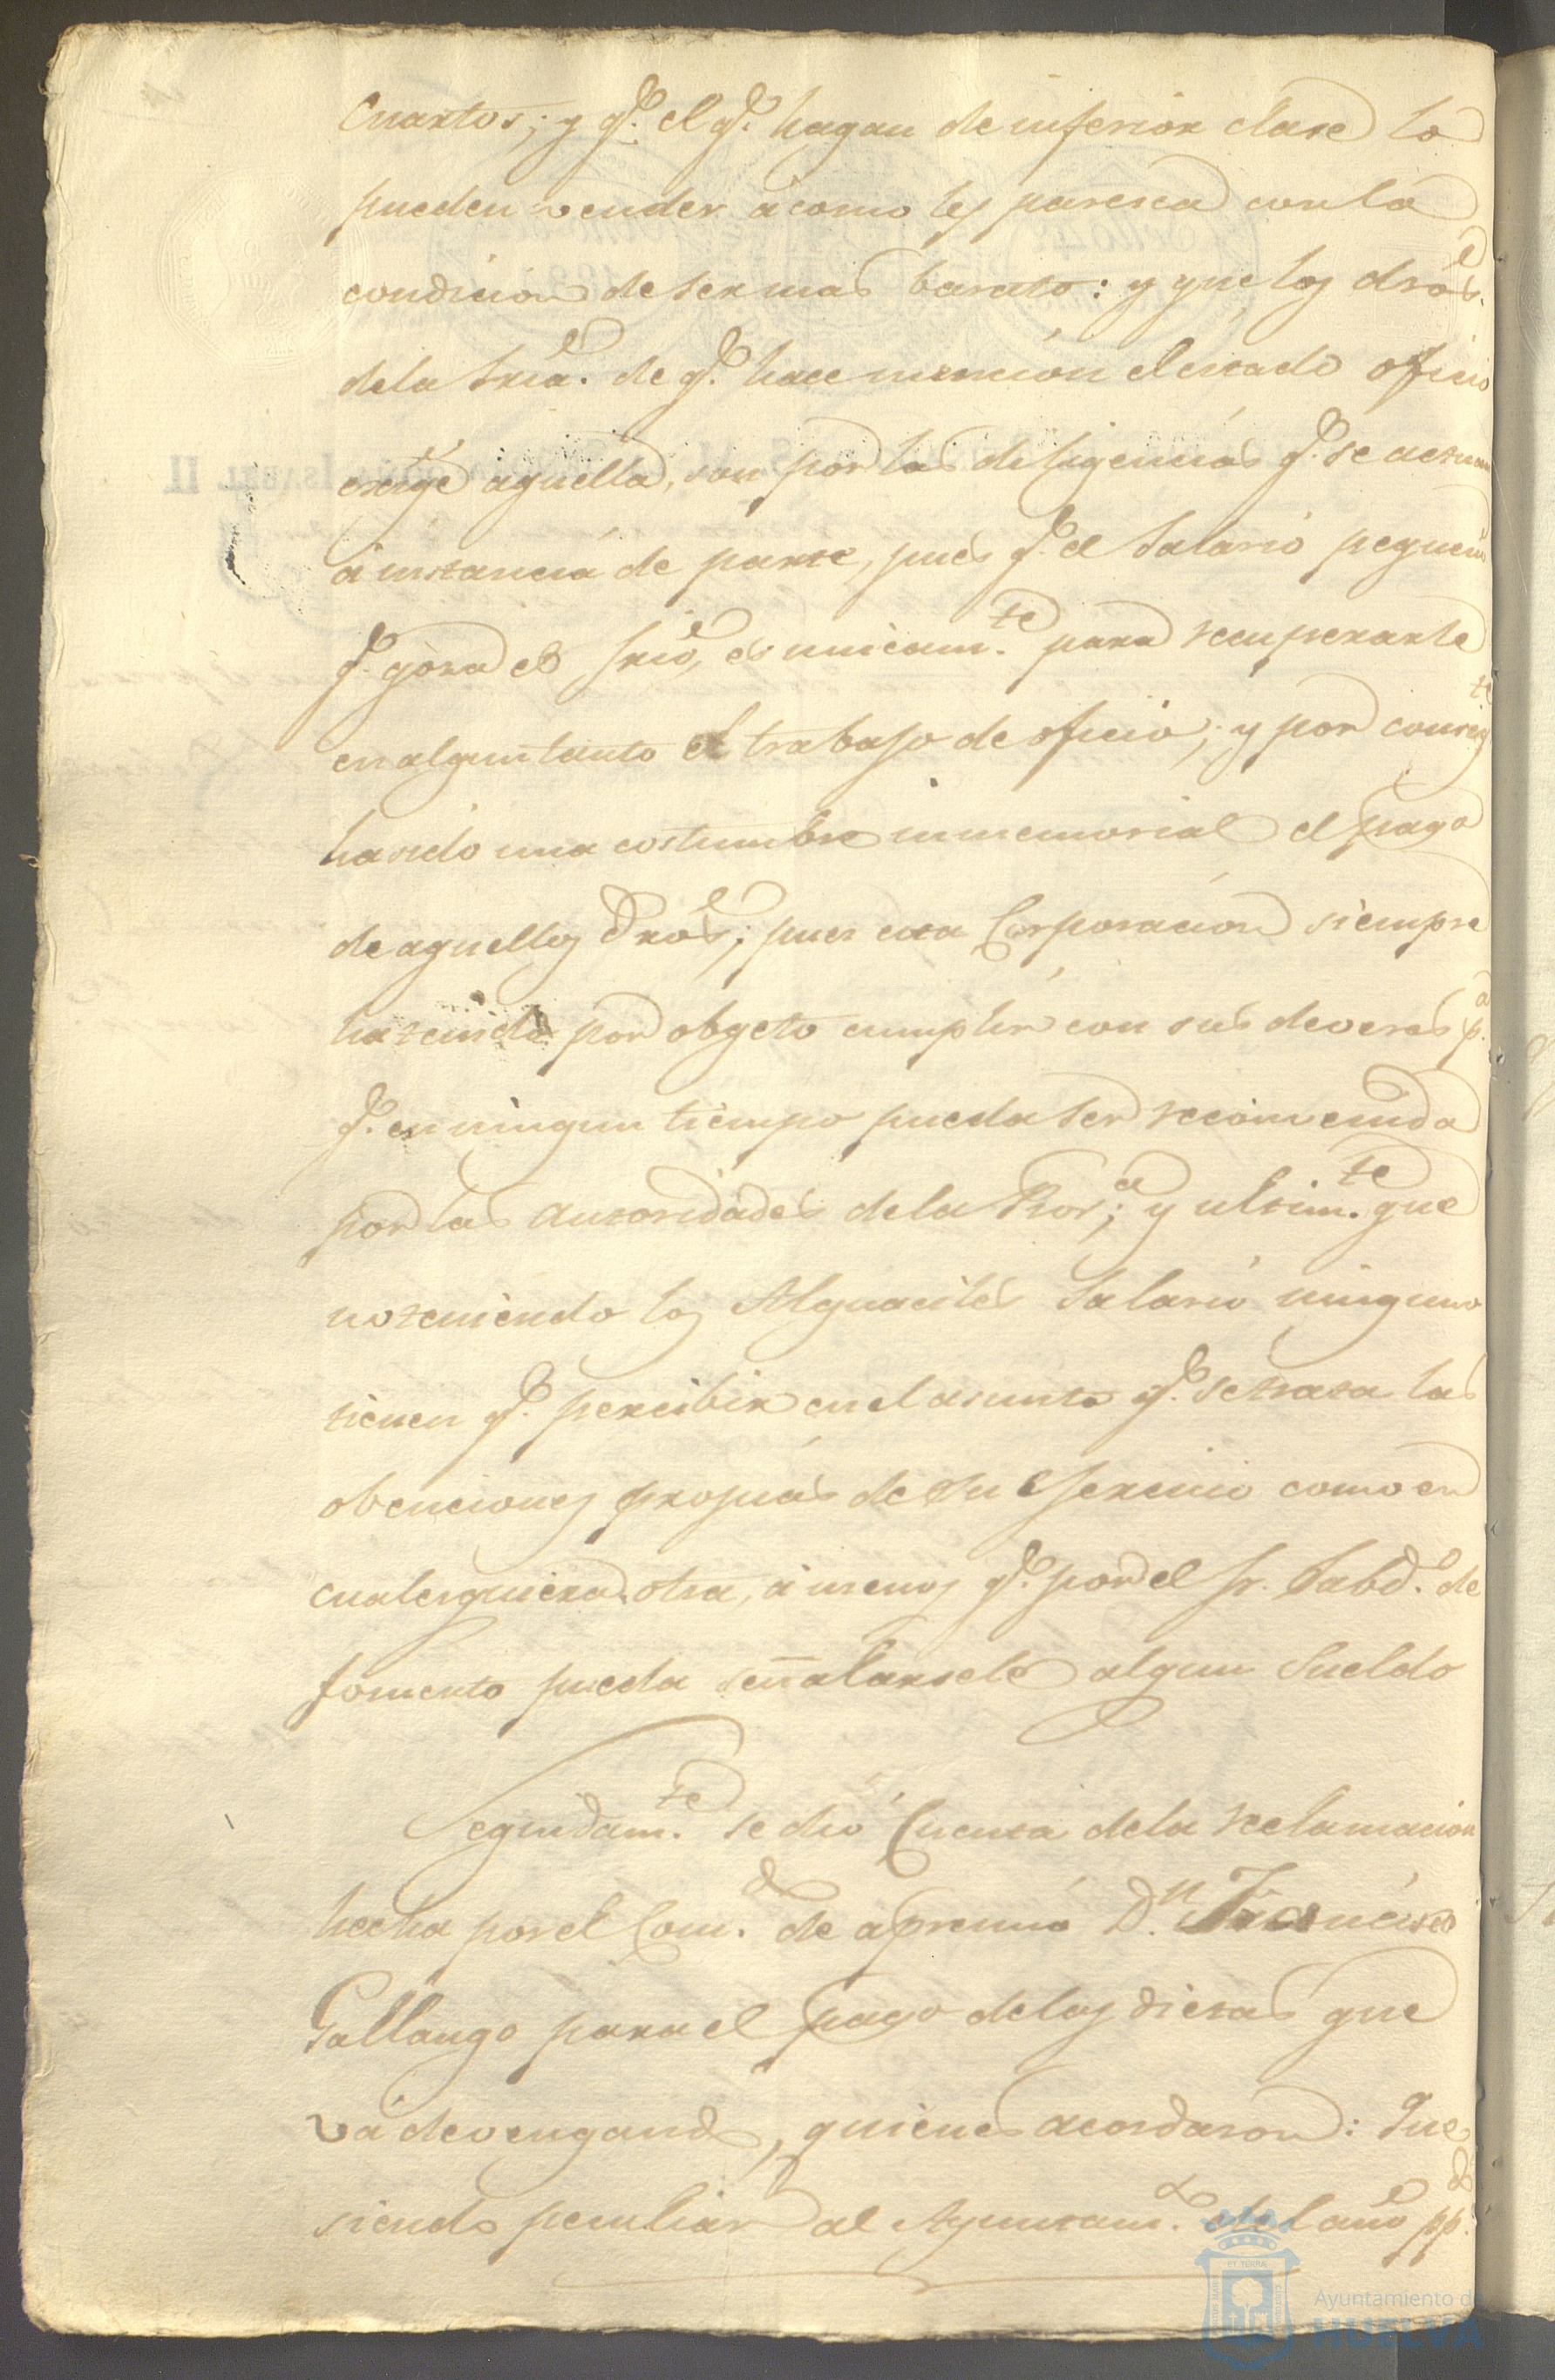 Cuartos; y q.e el q.e hagan de inferior clase lo
pueden vender á como les paresca con la
condicion de ser mas barato: y que los dros.
dela Sria. de q.e hace mencion el citado oficio
exige aquella, son por las diligencias q.e se actuan
á instancia de parte, pues q.e el Salario pequeño
q.e goza el Srio, es unicam.te para recuperarle
en algun tanto el trabajo de oficio; y por consig.te
ha sido una costumbre inmemorial el pago
de aquellos Dros; pues esta Corporacion siempre
ha tenido por obgeto cumplir con sus deveres p.a
q.e en ningun tiempo pueda ser reconvenida
por las autoridades de la Prov.a; y ultim.te que
no teniendo los Alguaciles Salario ninguno
tienen q.e percibir en el asunto q.e se trata las
obenciones propias de su egercicio como en
cualesquiera otra, á menos q.e por el Sr. Subd.o de
fomento pueda señalarsele algun Sueldo
Seguidam.te se dió Cuenta de la reclamacion
hecha por el Com.do de apremio D.n Francisco
Gallango para el pago de las dietas que
vá devengando, quienes acordaron: Que
siendo peculiar al Ayuntam.to del año pp.do
II ISABEL
Ayuntamiento de
HUELVA